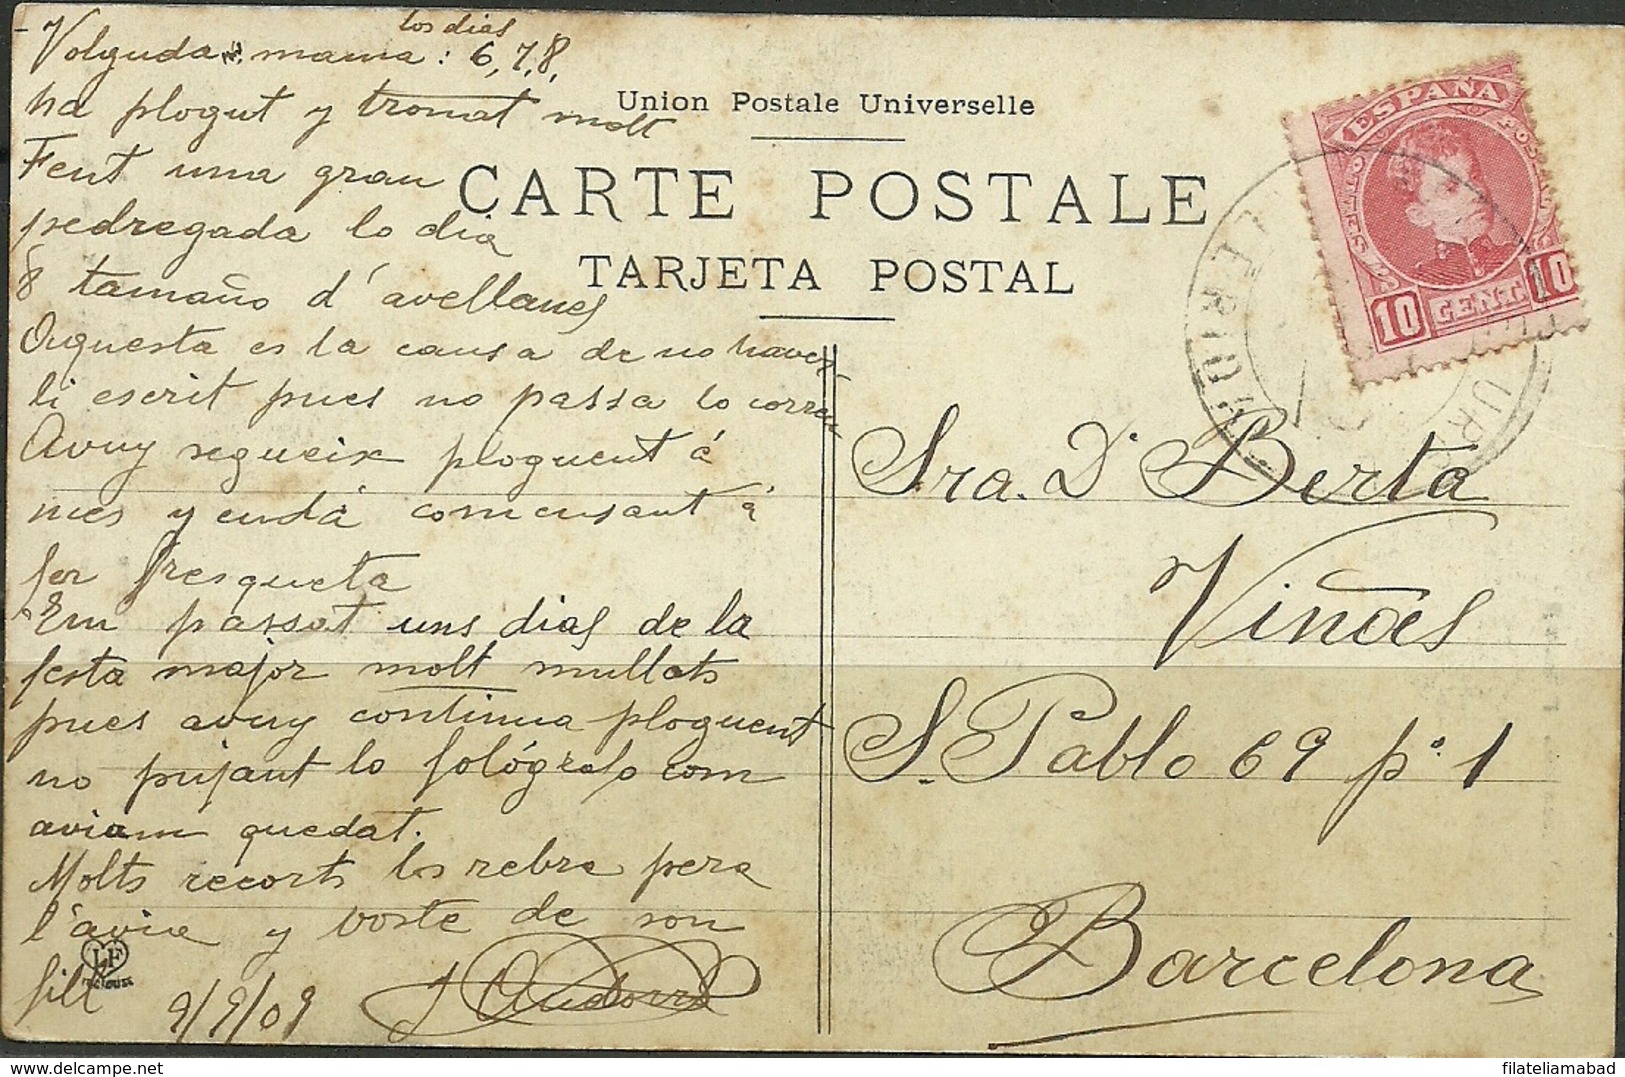 los dias
- Volguda mama: 6, 7, 8,
ha plogut y tronat molt
Fent una gran
pedregada lo dia
8 tamaño d'avellanes
Aquesta es la causa de no haver-
li escrit pues no passa lo correu
Avuy segueix ploguent á
mes y endá comensant á
fer fresqueta
Em passat uns dias de la
festa major molt mullats
pues avuy continua ploguent
no pujant lo fológrafo com
aviam quedat.
Molts recorts los rebra pera
l'avia y voste de son
fill
9/9/09 J Andorrà
LF
Union Postale Universelle
CARTE POSTALE
TARJETA POSTAL
ESPAÑA
POSTAL
10 CENT. 10
Sra. Dª Berta
Viñas
S. Pablo 69 pº 1
Barcelona
filateliamabad